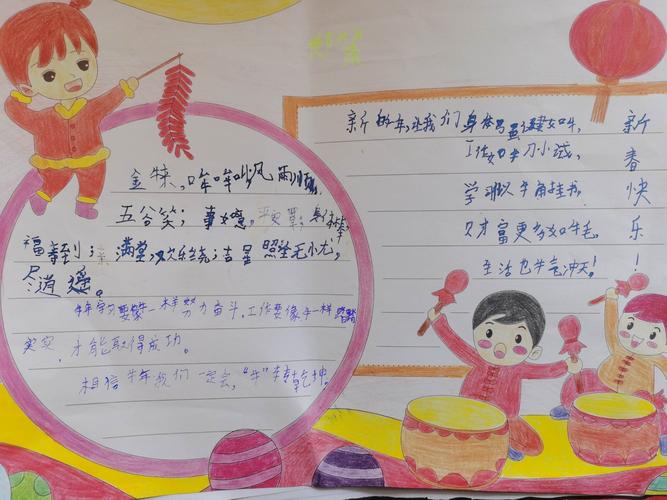 金牛,哞哞叫,风雨顺,
五谷笑;事如意,平安罩;身体棒
福寿到;满堂,欢乐绕;吉星照,无忧,
尽逍遥。
牛年学习要像一样努力奋斗,工作要像牛一样踏踏
实实,才能取得成功。
相信牛年我们一定会,“牛”转乾坤。
新的年,让我们身体强健如牛,
工作如牛刀小试,
学习以牛角挂书,
财富更多如牛毛,
生活也牛气冲天!
新春快乐!